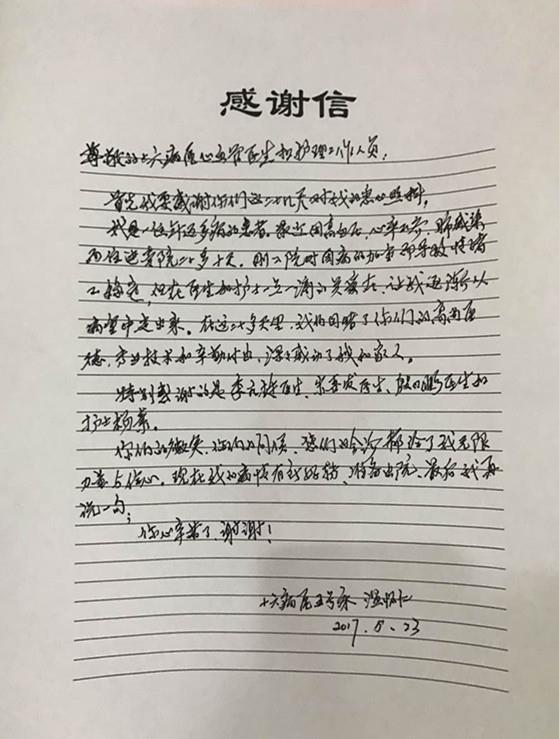 感谢信
尊敬的十六病区心血管医生和护理工作人员：
首先我要感谢你们这二十几天对我的悉心照料。
我是一位年迈多病的患者。最近因高血压，心率不齐，肺感染
而住进贵院二十多天。刚入院时因病的加重而导致情绪
不稳定，但在医生和护士一点一滴的关爱在，让我逐渐从
病望中走出来。在这二十多天里，我目睹了你们的高尚医
德，专业技术和辛勤付出，深深感动了我和家人。
特别感谢的是李元 医生、 医生、殷 鹏医生和
护士杨慕。
你们的微笑、您们的问候、您们的会诊都给了我无限
力量与信心。现在我的病情有所好转、准备出院、最后我再
说一句：
你们辛苦了，谢谢！
十六病区五号床 温怀仁
2017.8.23